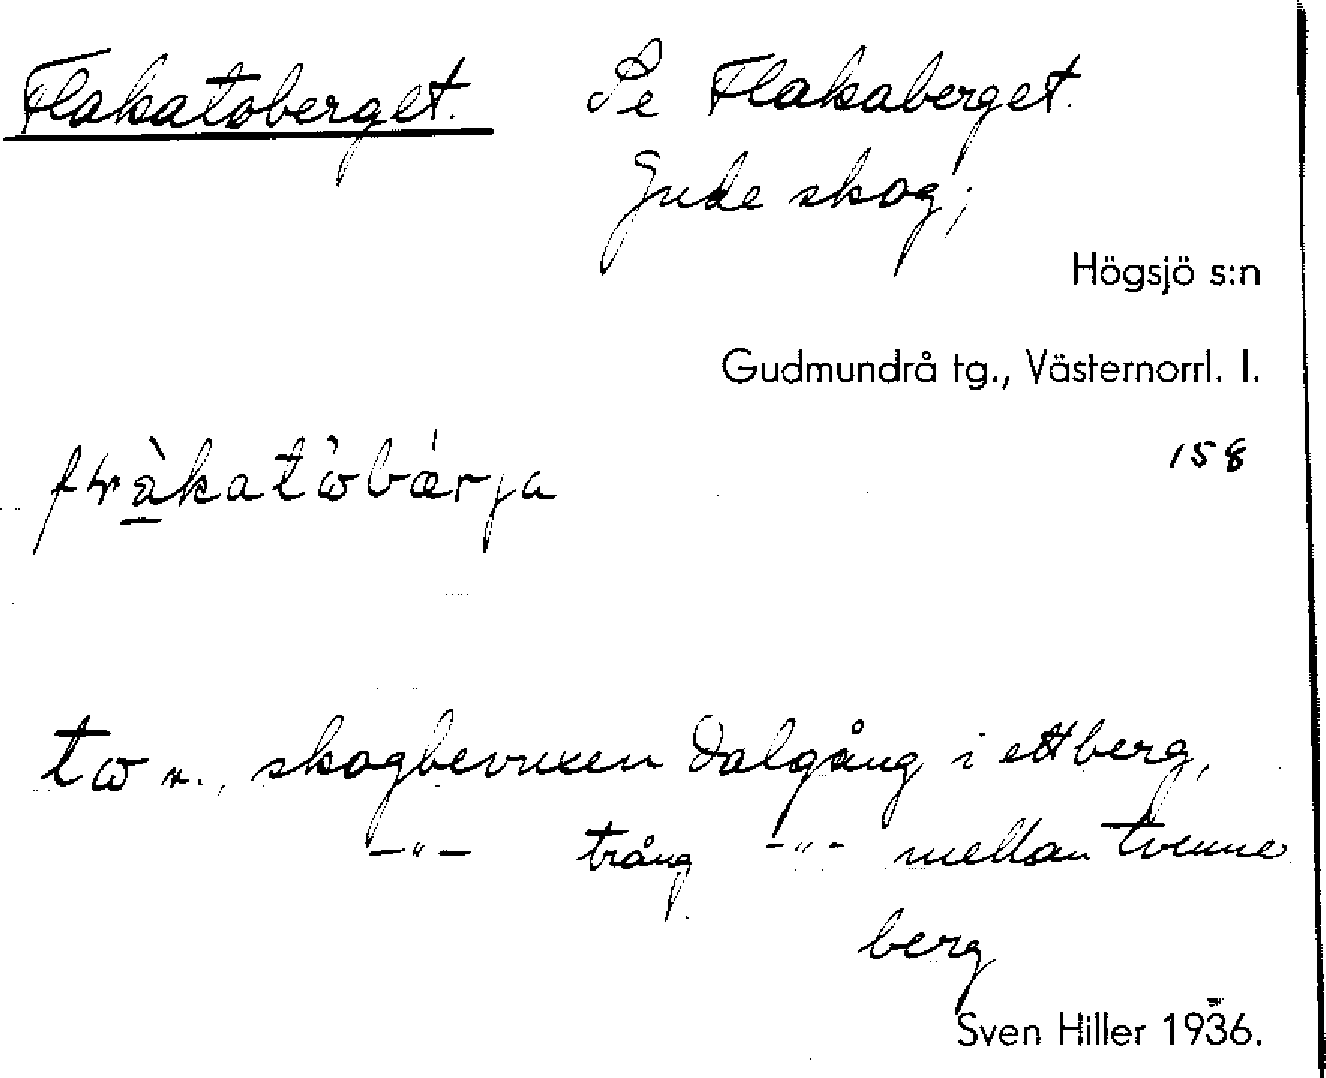 Flakatoberget. Se Flakaberget
Gude skog;
Högsjö s:n
Gudmundrå tg., Västernorrl. l.
158
tω n., skogbevuxen dalgång i ett berg,
–"– trång –"– mellan tvenne
berg
Sven Hiller 1936.